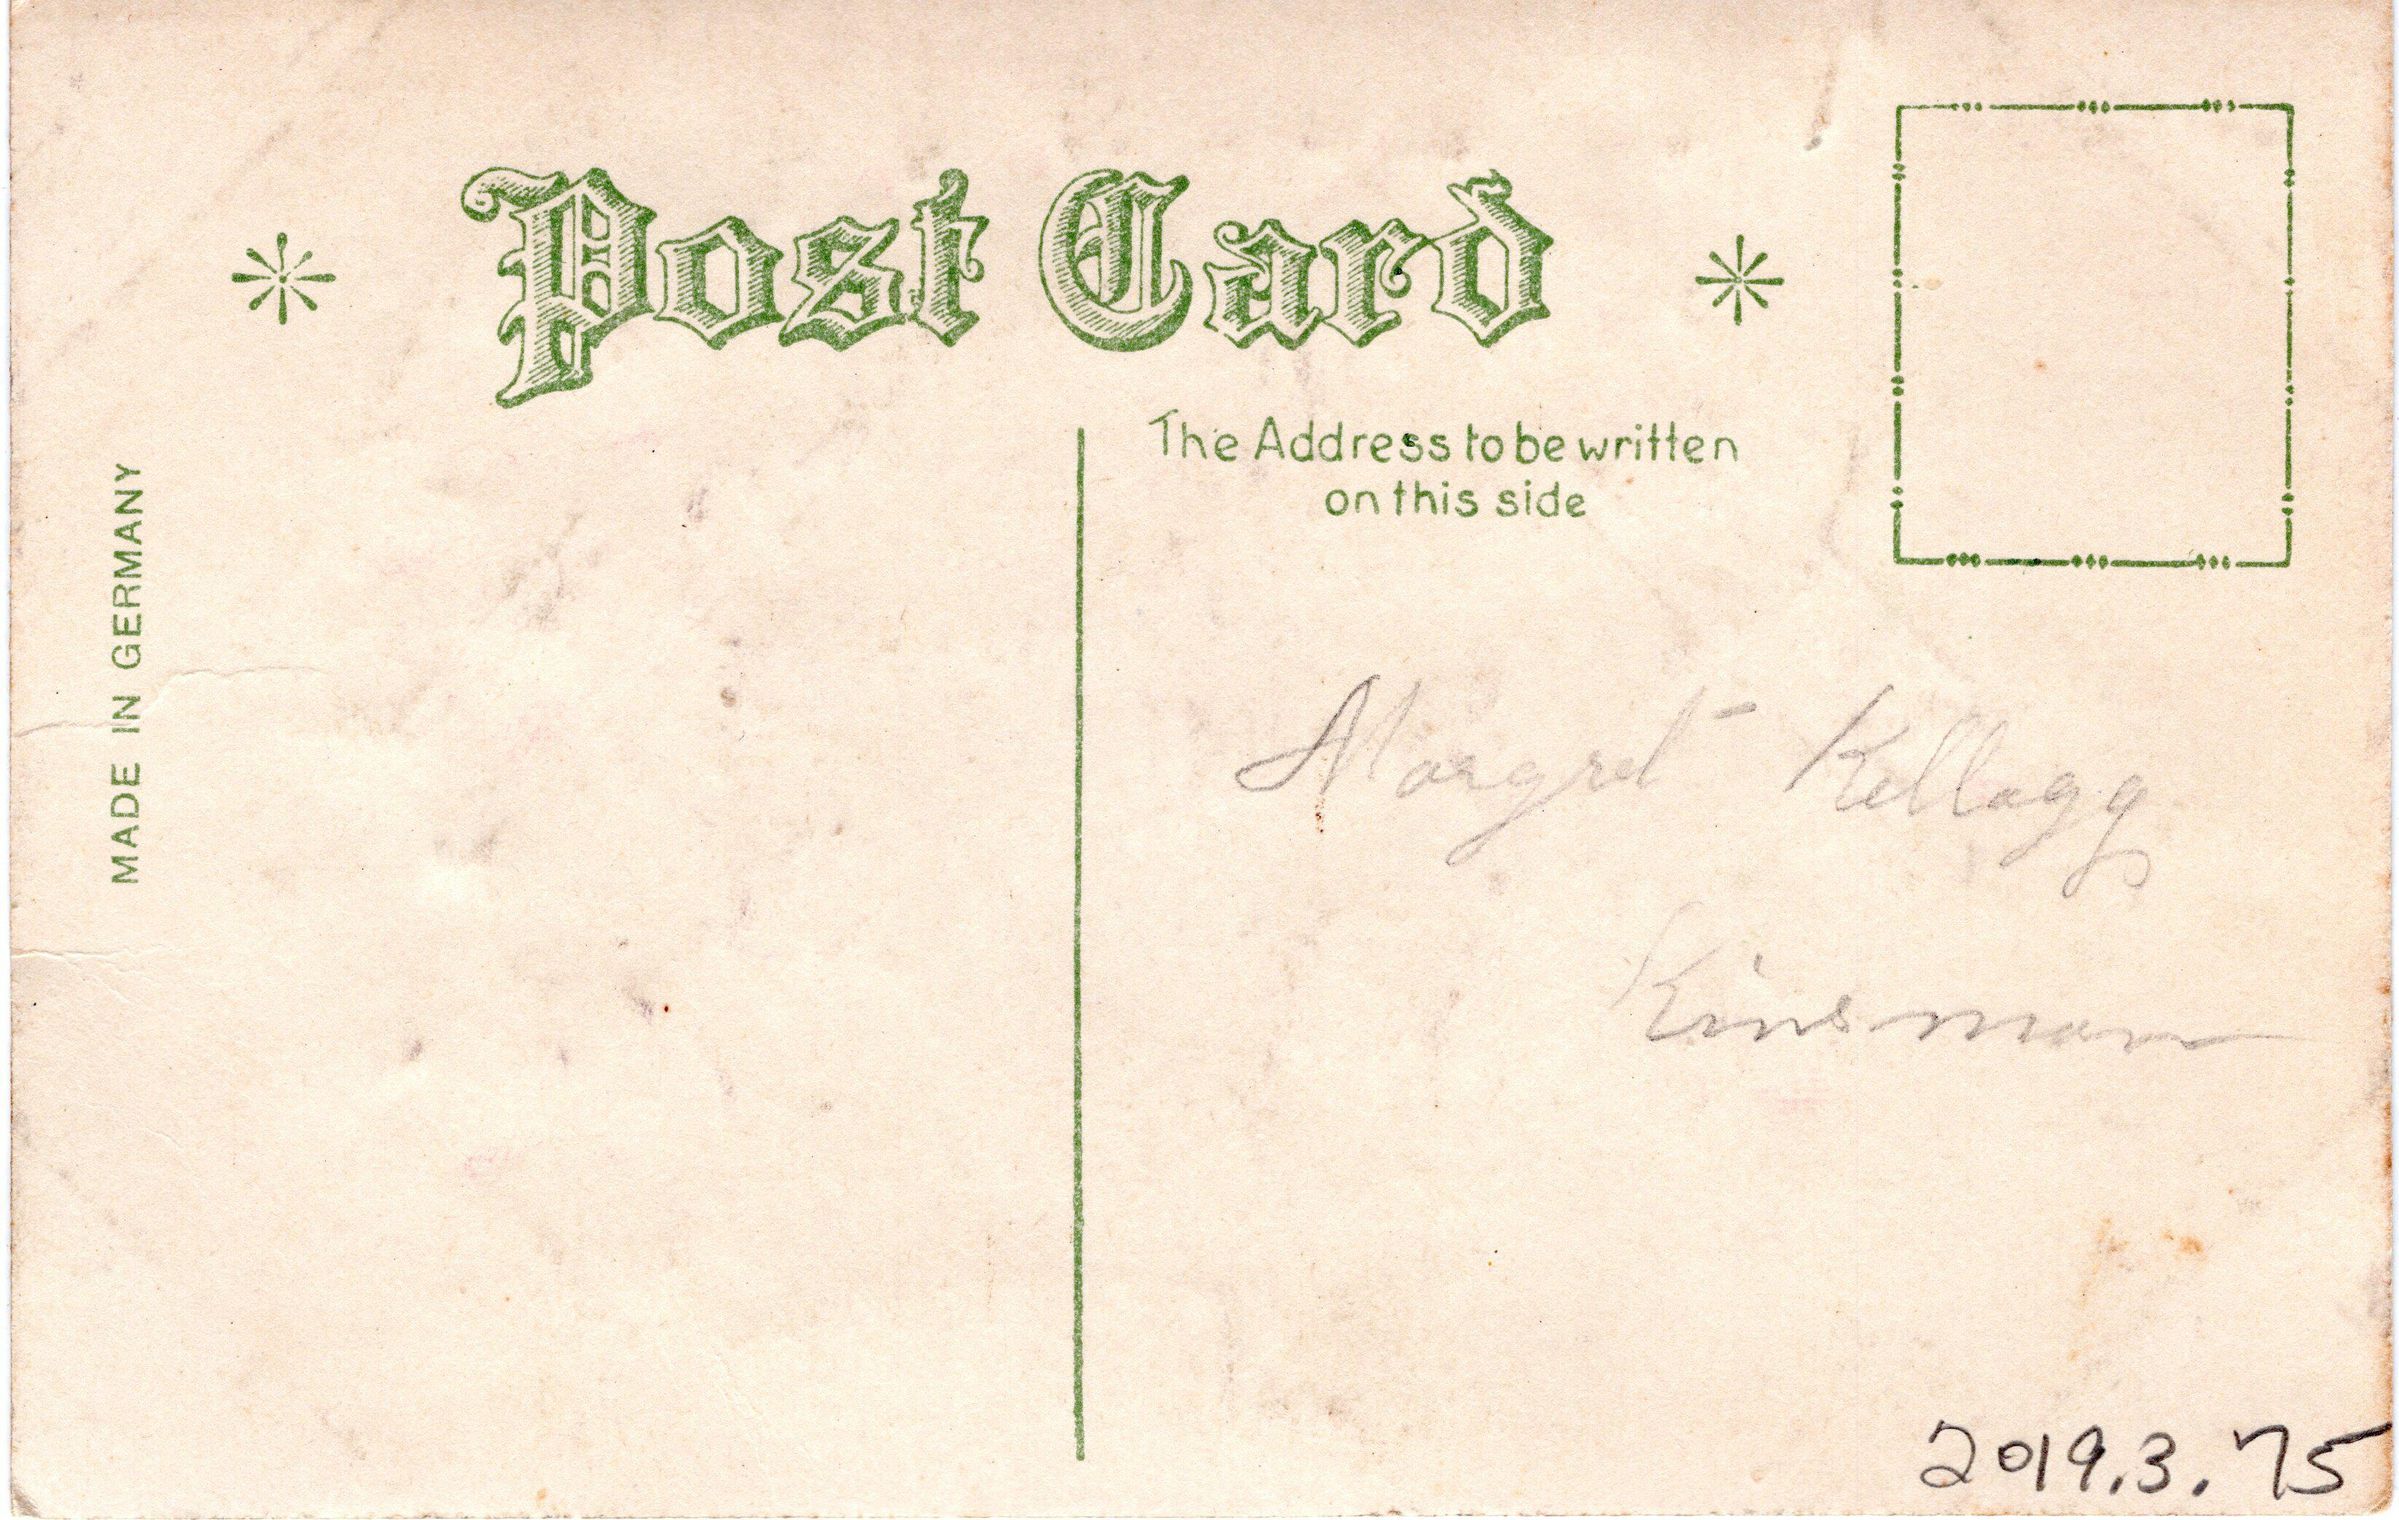 Post Card
The Address to be written
on this side
MADE IN GERMANY
Margret Kellogg
Kinsman
2019.3.75